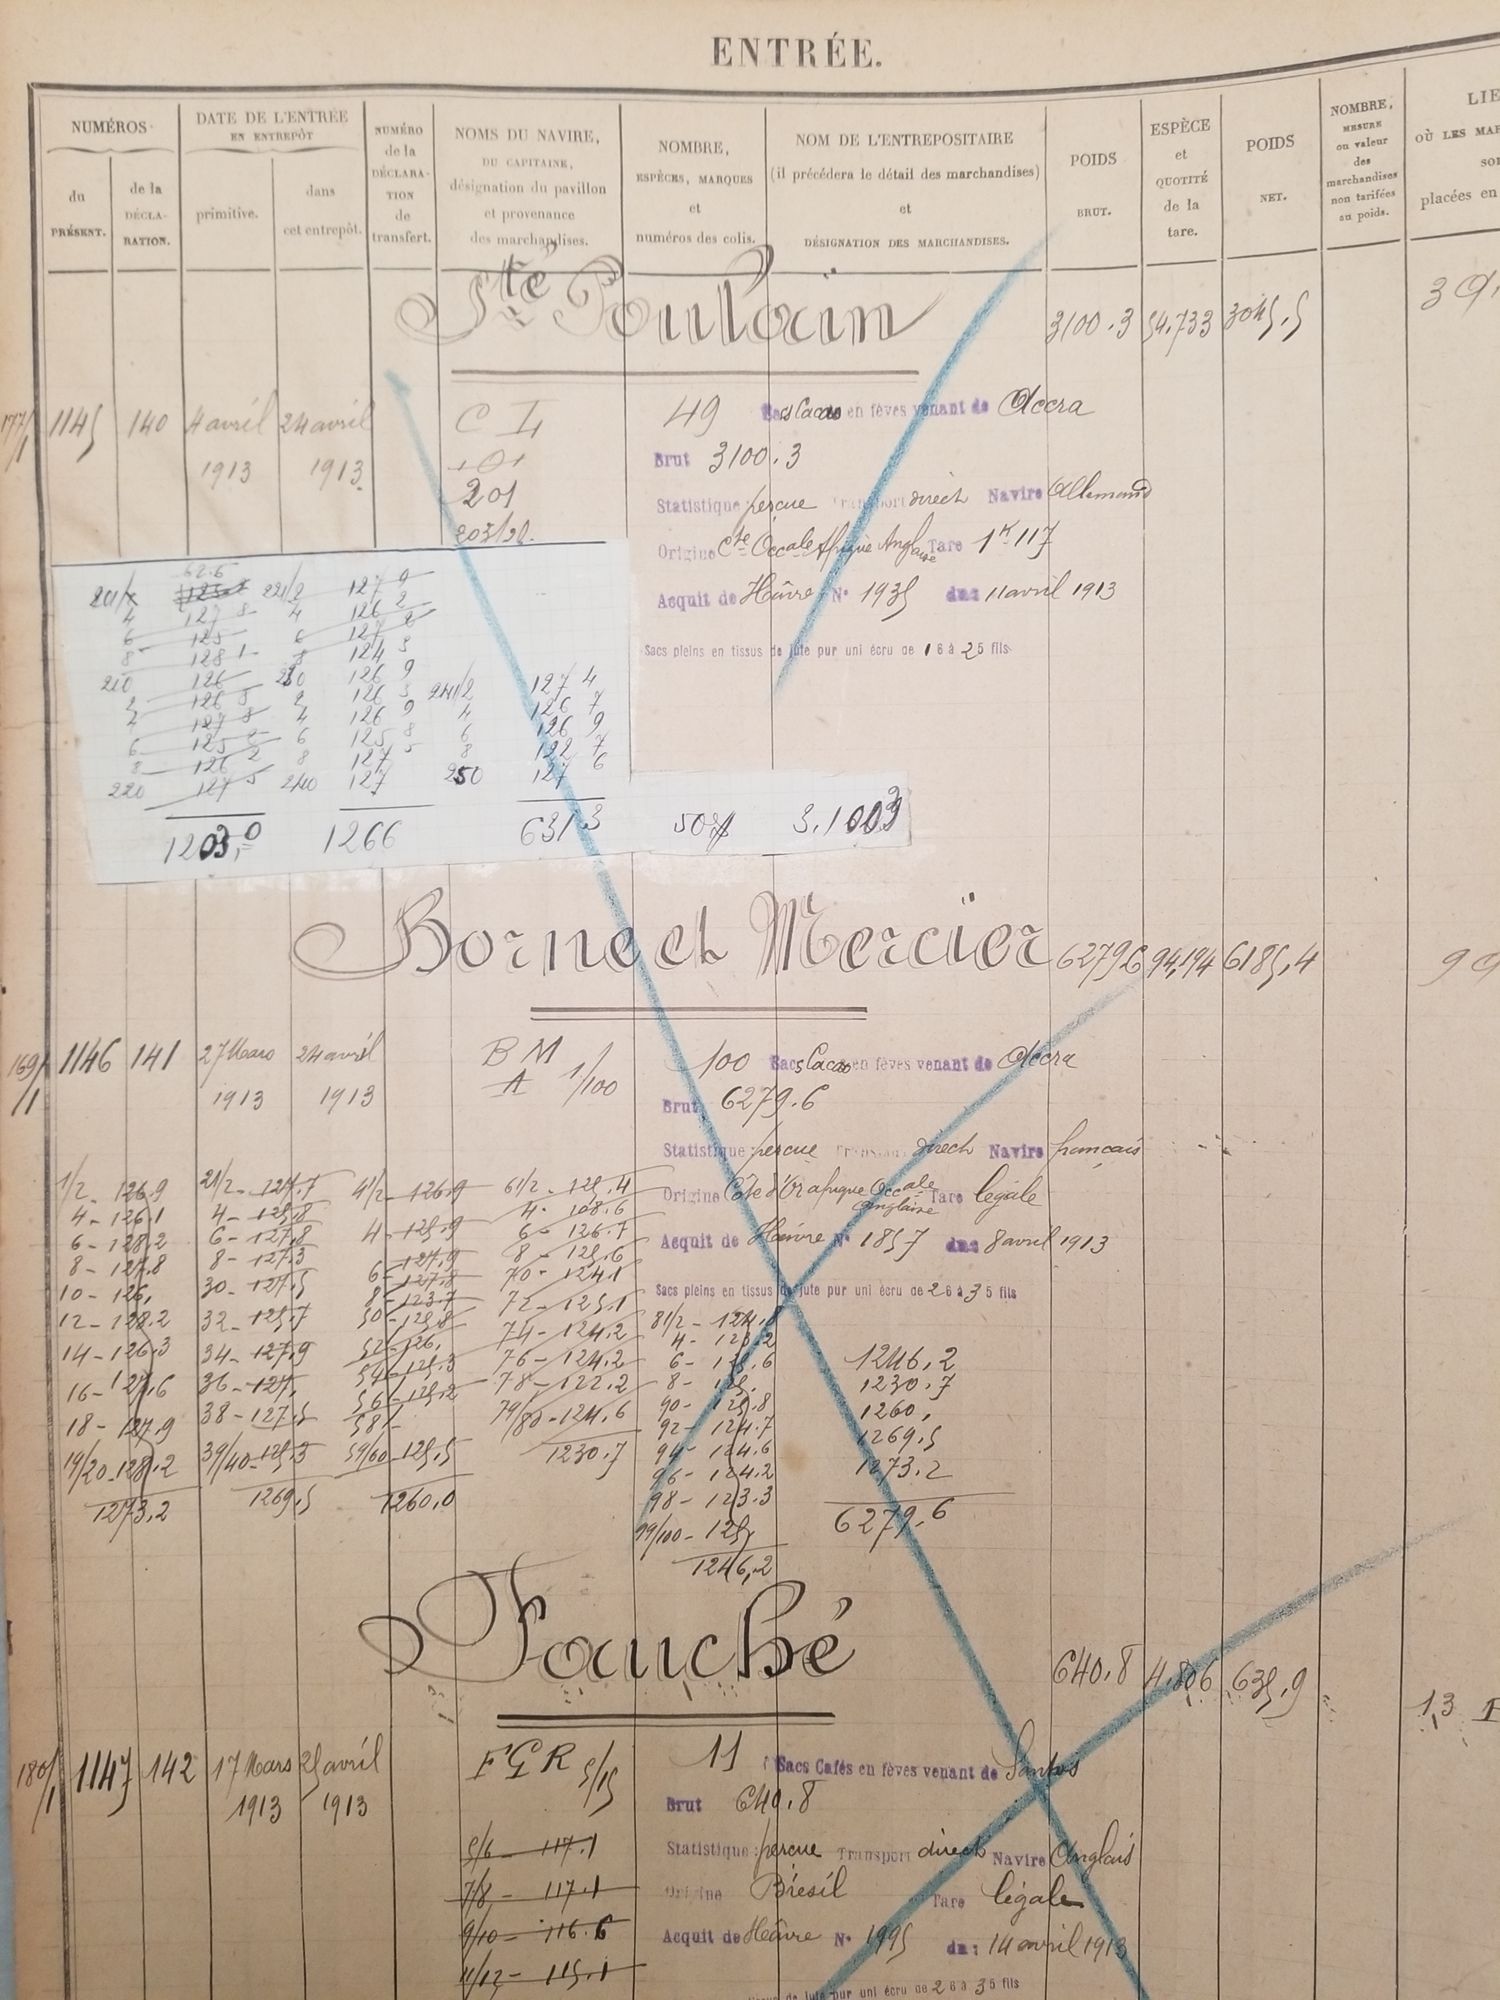 ENTRÉE.
NUMÉROS
du PRÉSENT.
de la DÉCLARATION.
DATE DE L'ENTRÉE EN ENTREPÔT
primitive.
dans cet entrepôt.
NUMÉRO de la DÉCLARATION de transfert.
NOMS DU NAVIRE,
DU CAPITAINE,
désignation du pavillon
et provenance
des marchandises.
NOMBRE,
ESPÈCES, MARQUES
et
numéros des colis.
NOM DE L'ENTREPOSITAIRE
(il précédera le détail des marchandises)
et
DÉSIGNATION DES MARCHANDISES.
POIDS BRUT.
ESPÈCE et QUOTITÉ de la tare.
POIDS NET.
NOMBRE, MESURE ou valeur des marchandises non tarifées au poids.
LIE
OÙ LES MAR
so
placées en
Sté Poulain 3100.3 54.733 3045.5
177/1 1145 140 4 avril 1913 24 avril 1913
C I
201
203/21.
49 Sacs Cacao en fèves venant de Accra
Brut 3100.3
Statistique: perçue Transport direct Navire Allemand
Origine Cte Occale Afrique Anglaise Tare 1k117
Acquit de Hâvre N° 1935 du: 11 avril 1913
Sacs pleins en tissus de jute pur uni écru de 16 à 25 fils
62.6
4 127 8
6 125
8 128 1
210 126
2 126 5
4 127 8
6 125 2
8 126 2
220 127 5
1203,0
221/2 127 9
4 126 2
6 127 2
8 124 5
230 126 9
2 126 5
4 126 9
6 125 8
8 127 5
240 127
1266
241/2 127 4
4 126 7
6 126 9
8 122 7
250 127 6
631 3
3.1003
Borne et Mercier 6279.6 94,194 6185,4
169/1 1146 141 27 Mars 1913 24 avril 1913
B M
A 1/100
100 Sacs Cacao en fèves venant de Accra
Brut 6279.6
Statistique: perçue Transport direct Navire français
Origine Côte d'Or afrique Occale anglaise Tare légale
Acquit de Hâvre N° 1857 du: 8 avril 1913
Sacs pleins en tissus de jute pur uni écru de 26 à 35 fils
1/2 - 126.9
4 - 126.1
6 - 128.2
8 - 127.8
10 - 126,
12 - 128.2
14 - 126.3
16 - 127.6
18 - 127.9
19/20 - 128.2
1273,2
21/2 - 127.7
4 - 125.8
6 - 127.8
8 - 127.3
30 - 127.5
32 - 125.7
34 - 127.9
36 - 127,
38 - 127.5
39/40 - 125.3
1269.5
41/2 - 126.9
4 - 125.9
6 - 127.9
8 - 127.8
50 - 123.7
52 - 125.8
54 - 126,
56 - 125.3
58 - 125.2
59/60 - 125.5
1260,0
61/2 - 125.4
4 - 108.6
6 - 126.7
8 - 125.6
70 - 124.1
72 - 125.1
74 - 124.2
76 - 124.2
78 - 122.2
79/80 - 124.6
1230.7
81/2 - 124.8
4 - 123.2
6 - 125.6
8 - 125,
90 - 125.8
92 - 124.7
94 - 124.6
96 - 124.2
98 - 123.3
99/100 - 125,
1246,2
1246,2
1230.7
1260,
1269.5
1273.2
6279.6
Fauché 640.8 4.806 635.9
13 F
180/1 1147 142 17 Mars 1913 25 avril 1913
F G R 5/15
11 Sacs Cafés en fèves venant de Santos
Brut 640.8
Statistique: perçue Transport direct Navire Anglais
Origine Brésil Tare légale
Acquit de Hâvre N° 1995 du: 14 avril 1913
tissus de jute pur uni écru de 26 à 35 fils
5/6 - 117.1
7/8 - 117.1
9/10 - 116.6
11/12 - 115.1